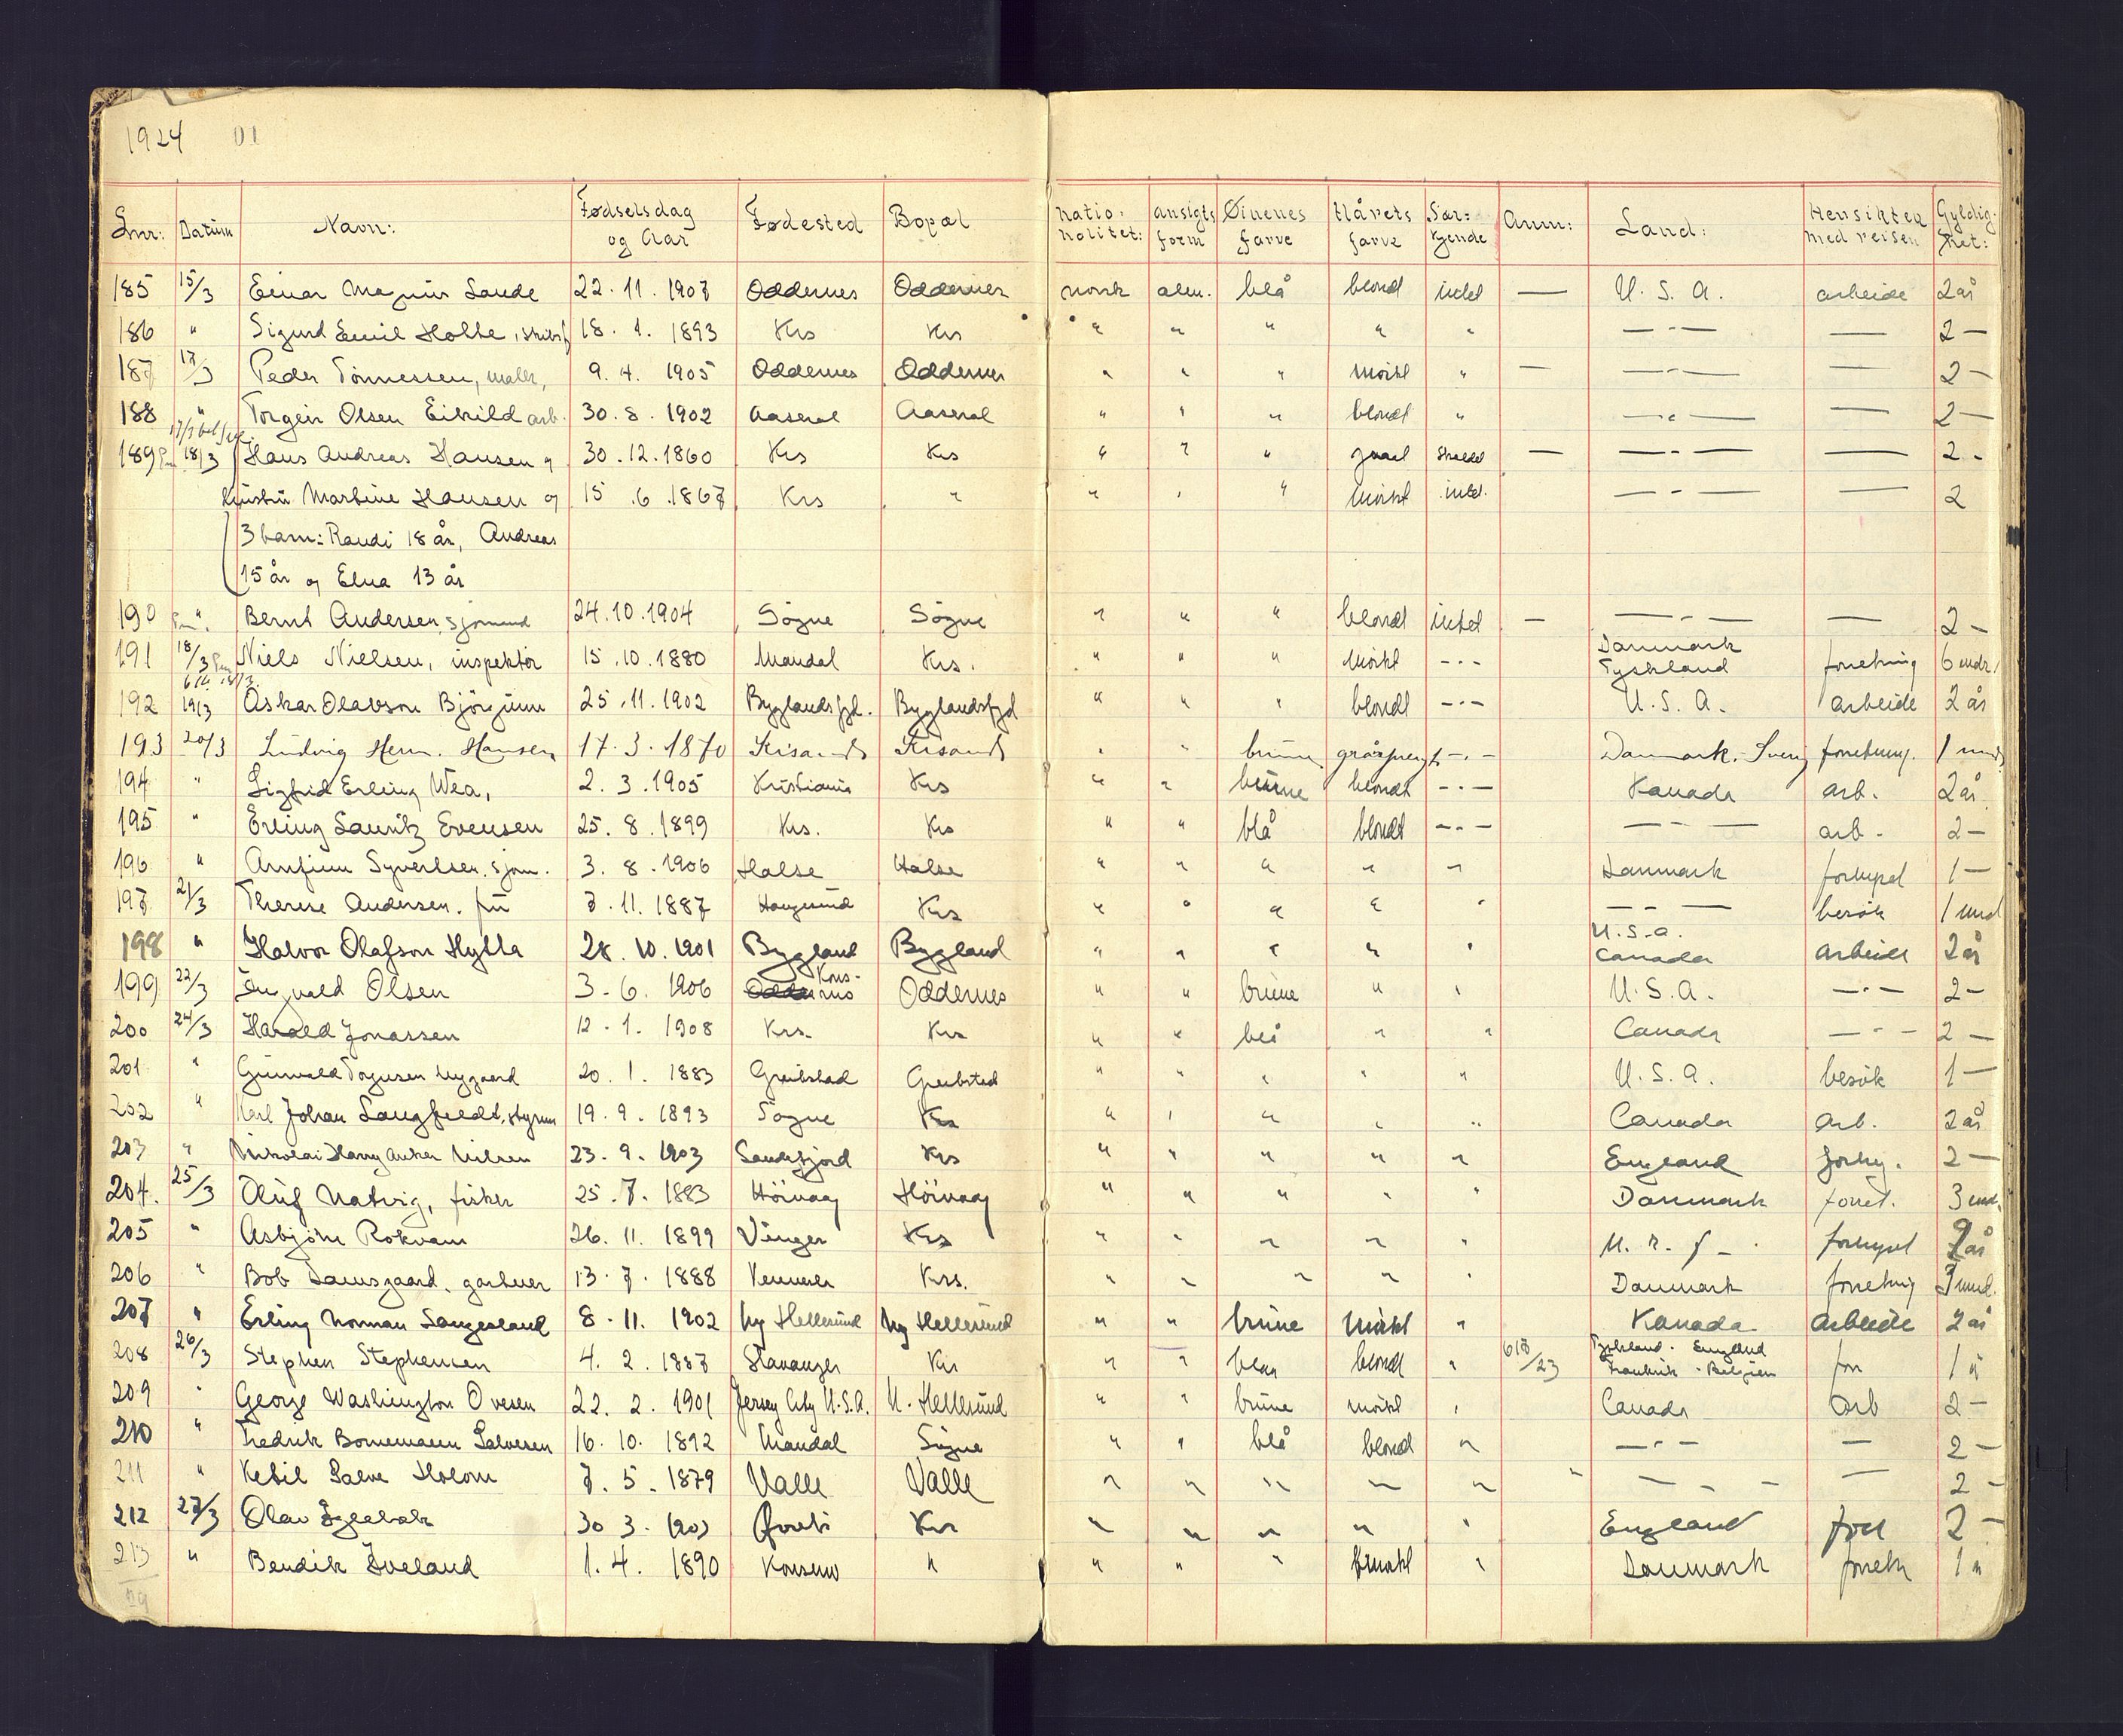 1924
Lnr: Datum Navn: Fødselsdag og Aar Fødested Bopæl Natio: nalitet: Ansigts form Øinenes farve Hårets farve Sær: kjende Anm: Land: Hensikten med reisen Gyldig: het:
185 15/3 Einar Magnus Sande 22.11.1907 Oddernes Oddernes norsk alm. blå blondt intet — U.S.A. arbeide 2 år
186 " Sigurd Emil Holte 18.1.1893 Krs Krs " " " " " —"— — 2 —
187 17/3 Peder Tönnessen, maler, 9.4.1905 Oddernes Oddernes " " " mörkt " — —"— — 2 —
188 " Torgeir Olsen Eikild arb. 30.8.1902 Aaseral Aaseral " " " blondt " —"— — 2 —
189 18/3 Hans Andreas Hansen og 30.12.1860 Krs Krs " " " — —"— — 2 -
Martine Hansen og 15.6.1867 Krs " " " " mörkt intet. —"— — 2
3 barn: Randi 18 år, Andreas
15 år og Elna 13 år
190 " Bernt Andersen, sjömand 24.10.1904 Sögne Sögne " " " blondt intet — —"— — 2 —
191 18/3 Niels Nielsen, inspektör 15.10.1880 Mandal Krs. " " " mörkt -"- Danmark Tyskland forretning 6 mdr.
192 19/3 Askar Olavson Björgum 25.11.1902 Byglandsfjd. Byglandsfjd " " " blondt -"- U.S.A. arbeide 2 år
193 20/3 Ludvig Herm. Hansen 17.3.1870 Krisands Krisands " " brune gråsprengt -"- Danmark. Sverig forretning. 1 mnd.
194 " Sigfrid Erling Wea, 2.3.1905 Kristiania Krs " " brune blondt -"- Kanada arb. 2 år.
195 " Erling Lauritz Evensen 25.8.1899 Krs. Krs " " blå blondt -"- —"— arb. 2 —
196 " Arnfinn Syvertsen. sjöm. 3.8.1906 Halse Halse " " " " " Danmark forhyret 1 —
197 21/3 Therese Andersen. fru 7.11.1887 Haugesund Krs " " " " " —"— besök 1 mnd
198 " Halvor Olafson Hylla 28.10.1901 Bygland Bygland " " " " " U.S.A. Canada arbeide 2 år
199 22/3 Ingvald Olsen 3.6.1906 Krs. Oddernes " " brune " " U.S.A. —"— 2 —
200 24/3 Harald Jonassen 12.1.1908 Krs. Krs " " blå " " Canada —"— 2 —
201 " Gunvald Torjusen Nygaard 20.1.1883 Greibstad Greibsted " " " " " U.S.A. besök 1 —
202 " Karl Johan Langfeldt, styrm 19.9.1893 Sögne Krs " " " " " Canada arb. 2 år
203 " Nikolai Harry Anker Nilsen 23.9.1903 Sandefjord Krs " " " " " England forhy. 2 —
204. 25/3 Oluf Natvig, fisker 25.7.1883 Höivaag Höivaag " " " " " Danmark forret. 3 mnd.
205 " Asbjörn Rokvam 26.11.1899 Vinger Krs " " " " " forhyret år
206 " Bob Damsgaard, gartner 13.7.1888 Krs. " " " " " Danmark forretning 3 mnd.
207 " Erling Norman Langesland 8.11.1902 Ny Hellesund Ny Hellesund " " brune mörkt " Kanada arbeide 2 år
208 26/3 Stephen Stephensen 4.2.1887 Stavanger Krs " " blaa blondt " 618/23 Tyskland. England Frankrik. Belgien forr 1 år
209 " George Washington Ovesen 22.2.1901 Jersey City U.S.A. N. Hellesund " " brune mörkt " Canada arb 2 —
210 " Fredrik Bornemann Salvesen 16.10.1892 Mandal Sögne " " blå blondt " —"— — 2 —
211 " Ketil Salve Holom 7.5.1879 Valle Valle " " " " " " —"— — 2 —
212 27/3 Olav 30 3.1903 Krs " " " " " England forr 2 —
213 " Bendik Iveland 1.4.1890 " " " " " Danmark forretn 1 "